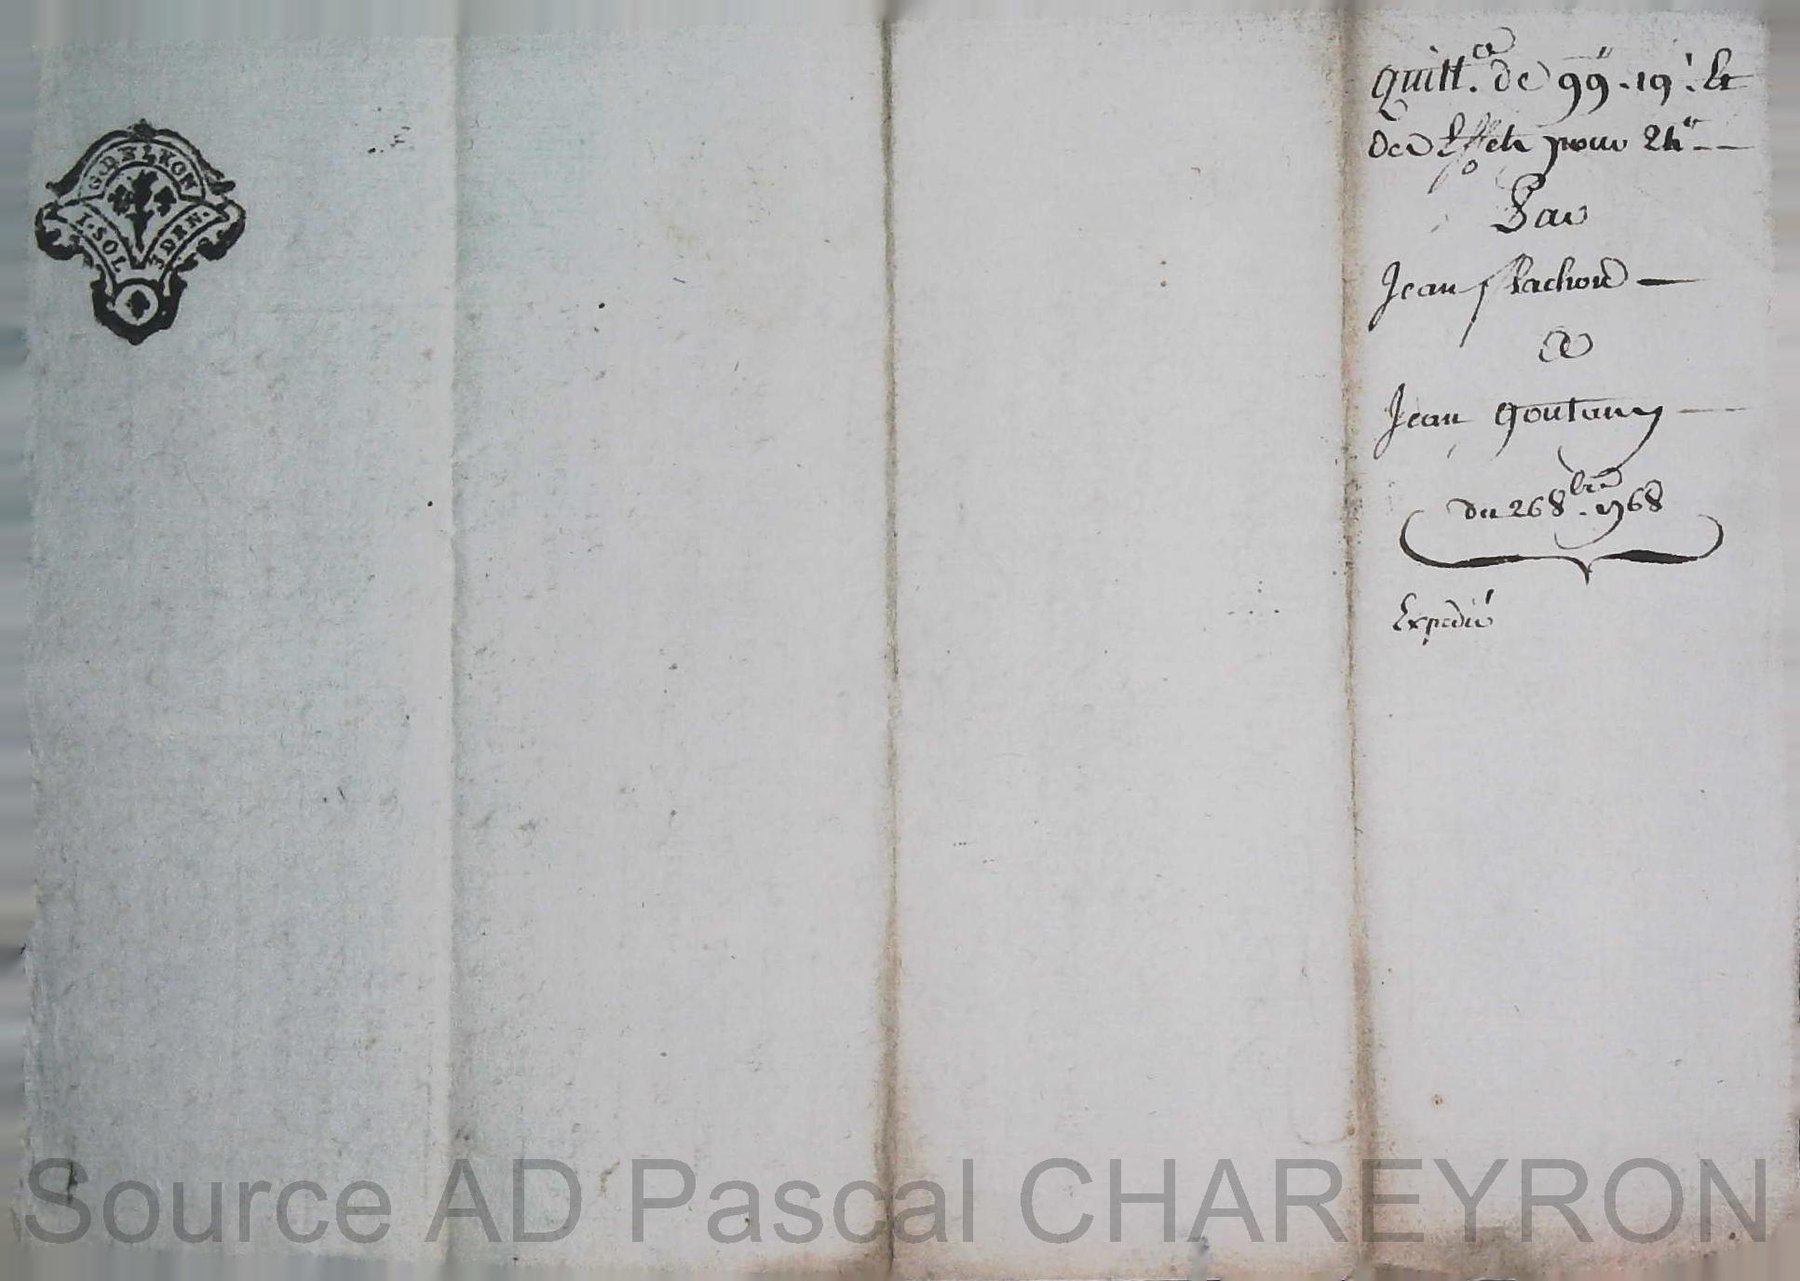 G. DE LYON
I. SOL 3 DEN.
Quitt.ce de 99lt. 19s. Et
des Effets pour 24lt
Par
Jean Flachore
A
Jean Goutany
du 26 8bre 1768
Expedié
Source AD Pascal CHAREYRON